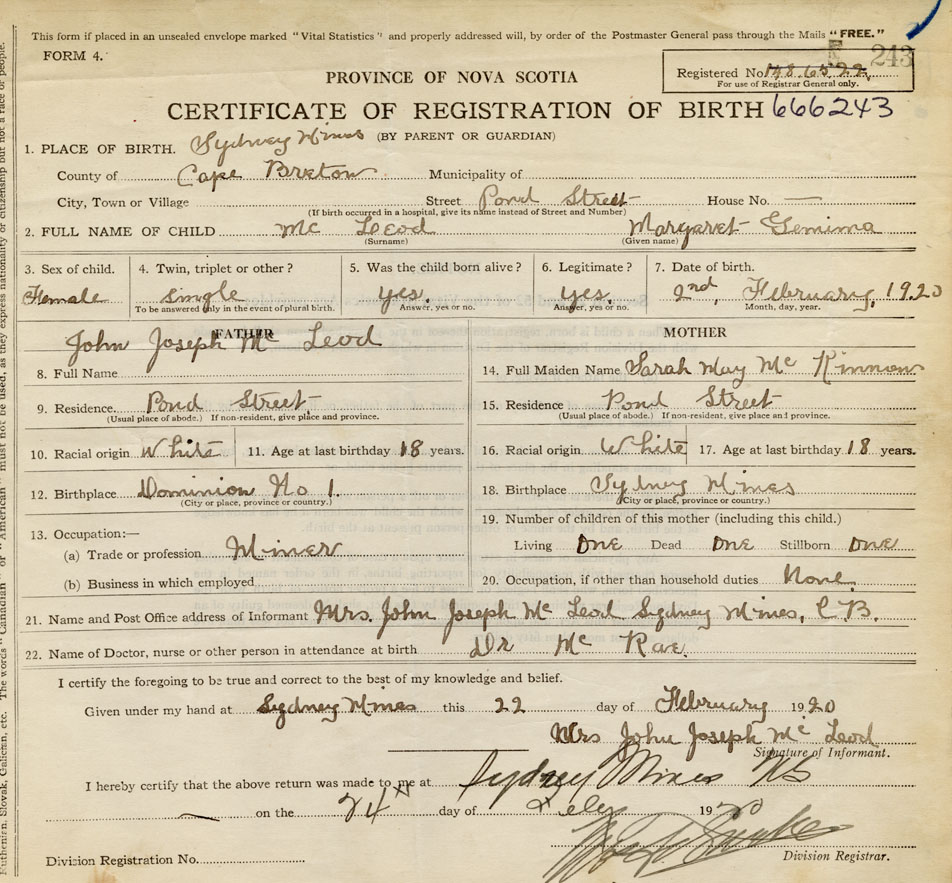 This form if placed in an unsealed envelope marked "Vital Statistics" and properly addressed will, by order of the Postmaster General pass through the Mails "FREE."
FORM 4.
243
PROVINCE OF NOVA SCOTIA
Registered No.
For use of Registrar General only.
CERTIFICATE OF REGISTRATION OF BIRTH 666243
(BY PARENT OR GUARDIAN)
1. PLACE OF BIRTH. Sydney Mines
County of Cape Breton Municipality of
City, Town or Village Street Pond Street House No. —
(If birth occurred in a hospital, give its name instead of Street and Number)
2. FULL NAME OF CHILD Mc Leod Margaret Gemima
(Surname) (Given name)
3. Sex of child. 4. Twin, triplet or other? 5. Was the child born alive? 6. Legitimate? 7. Date of birth.
Female single yes. yes. 2nd, February, 1920
To be answered only in the event of plural birth. Answer, yes or no. Answer, yes or no. Month, day, year.
FATHER MOTHER
John Joseph Mc Leod
8. Full Name 14. Full Maiden Name Sarah May Mc Kinnon
9. Residence. Pond Street 15. Residence Pond Street
(Usual place of abode.) If non-resident, give place and province. (Usual place of abode.) If non-resident, give place and province.
10. Racial origin White 11. Age at last birthday 18 years. 16. Racial origin White 17. Age at last birthday 18 years.
12. Birthplace Dominion No 1. 18. Birthplace Sydney Mines
(City or place, province or country.) (City or place, province or country.)
13. Occupation:— 19. Number of children of this mother (including this child.)
(a) Trade or profession Miner Living One Dead One Stillborn One
(b) Business in which employed 20. Occupation, if other than household duties None.
21. Name and Post Office address of Informant Mrs. John Joseph Mc Leod Sydney Mines, C B.
22. Name of Doctor, nurse or other person in attendance at birth Dr Mc Rae.
I certify the foregoing to be true and correct to the best of my knowledge and belief.
Given under my hand at Sydney Mines this 22 day of February 1920
Mrs John Joseph Mc Leod
Signature of Informant.
I hereby certify that the above return was made to me at Sydney Mines NS
on the 24th day of 1920
Division Registrar.
Division Registration No.